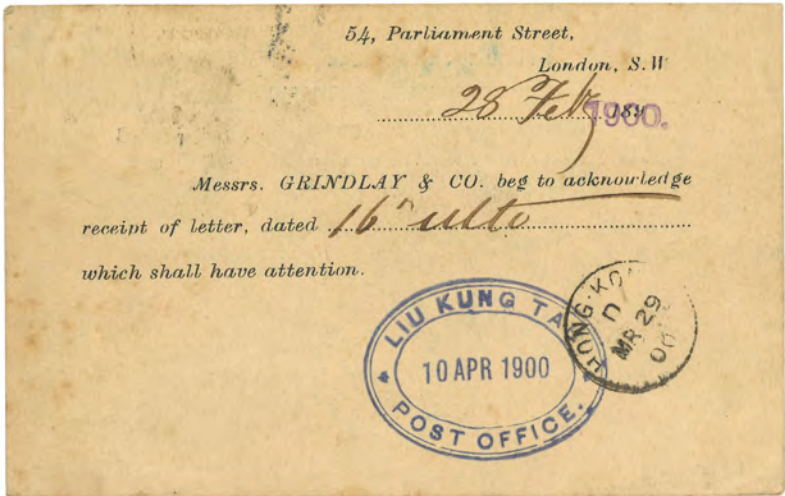 54, Parliament Street,
London, S. W
28 Feb 1900.
Messrs. GRINDLAY & CO. beg to acknowledge
receipt of letter, dated 16 ulto
which shall have attention.
LIU KUNG TA
10 APR 1900
POST OFFICE.
HONG-KO
D
MR 29
00